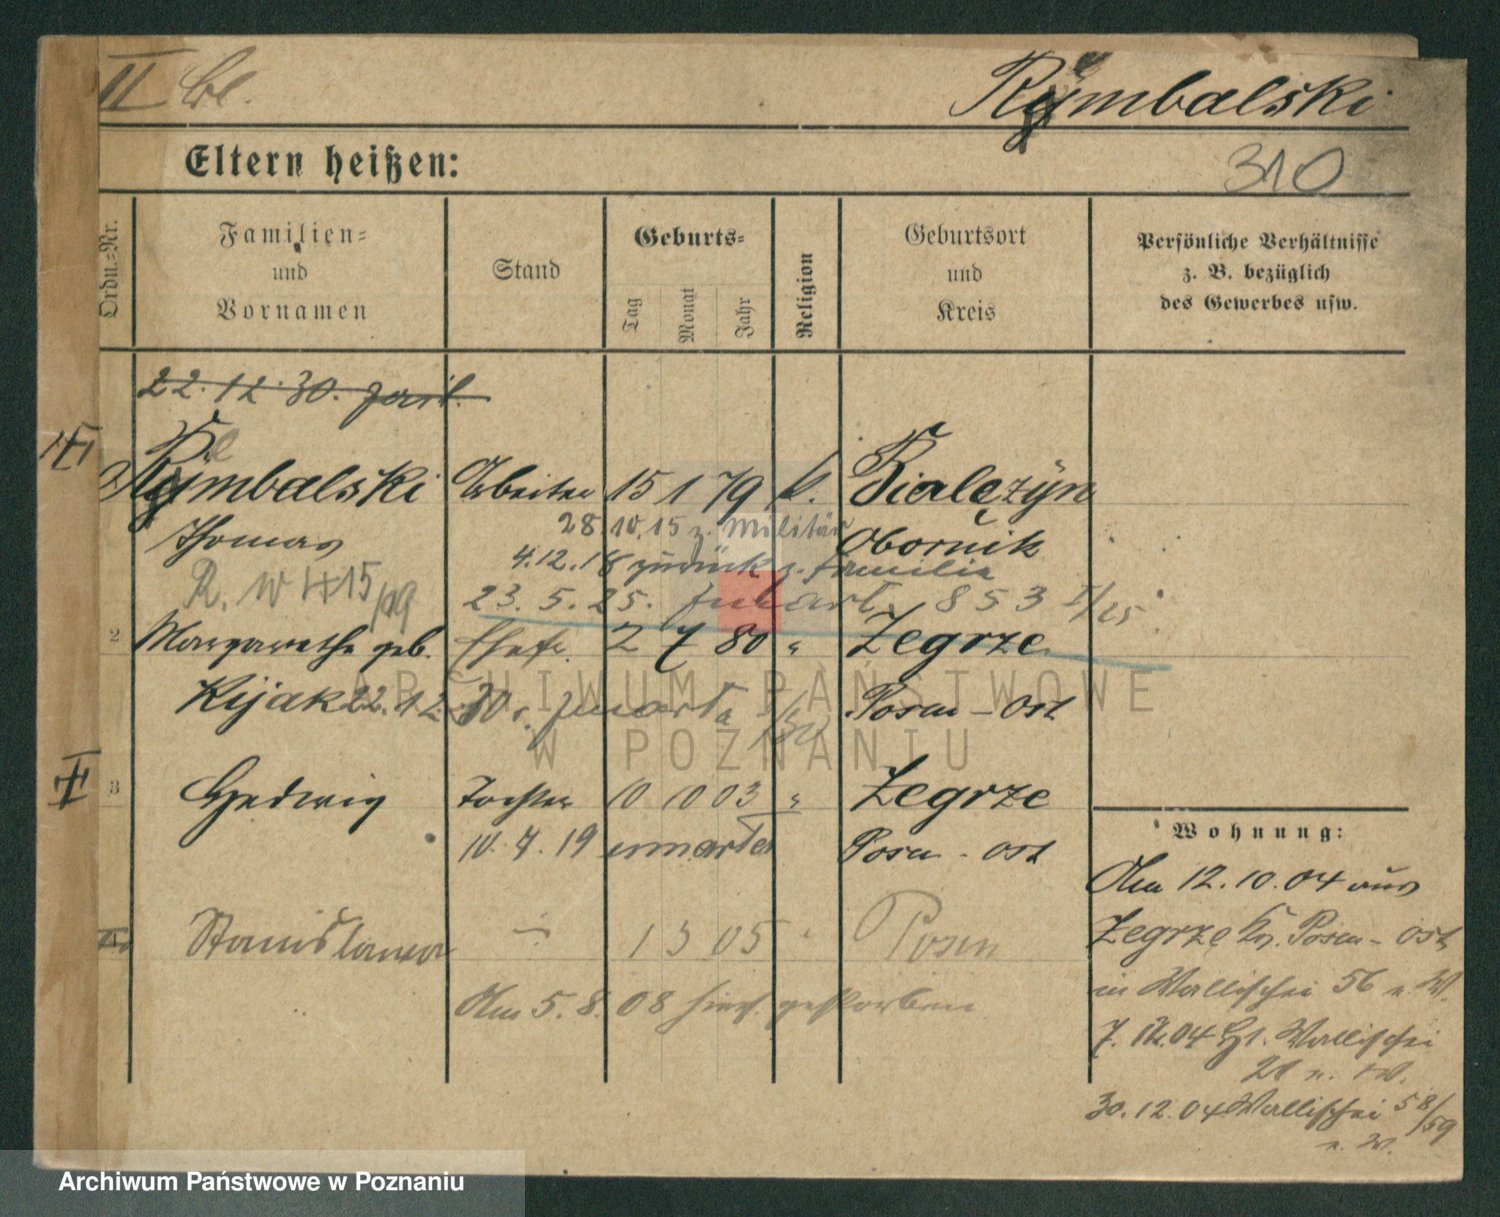 II bl.
Rymbalski
Eltern heißen:
310
Ordn.-Nr.
Familien- und Vornamen
Stand
Geburts-
Tag
Monat
Jahr
Religion
Geburtsort und Kreis
Persönliche Verhältnisse z. B. bezüglich des Gewerbes usw.
22.12.30.
Rymbalski Arbeiter 15 1 79 k. Bialężyn
Thomas
28.10.15 z. Militär
Obornik
4.12.18 zurück z. Familie
R. W 15/19
23.5.25. 853 I/25
2 Margarethe geb. Ehefr. 2 7 80 " Zegrze
Kijak 22.12.30. Posen-Ost
3 Hedwig Tochter 10 10 03 " Zegrze
10.7.19 Posen-Ost
Stanislawa 1 5 05 " Posen
Am 5.8.08 hier gestorben
Wohnung:
Am 12.10.04 aus
Zegrze Kr. Posen-Ost
in Wallischei 56 n. W.
7. 04 Wallischei
30.12.04 Wallischei 58/59
n. W.
ARCHIWUM PAŃSTWOWE
W POZNANIU
Archiwum Państwowe w Poznaniu